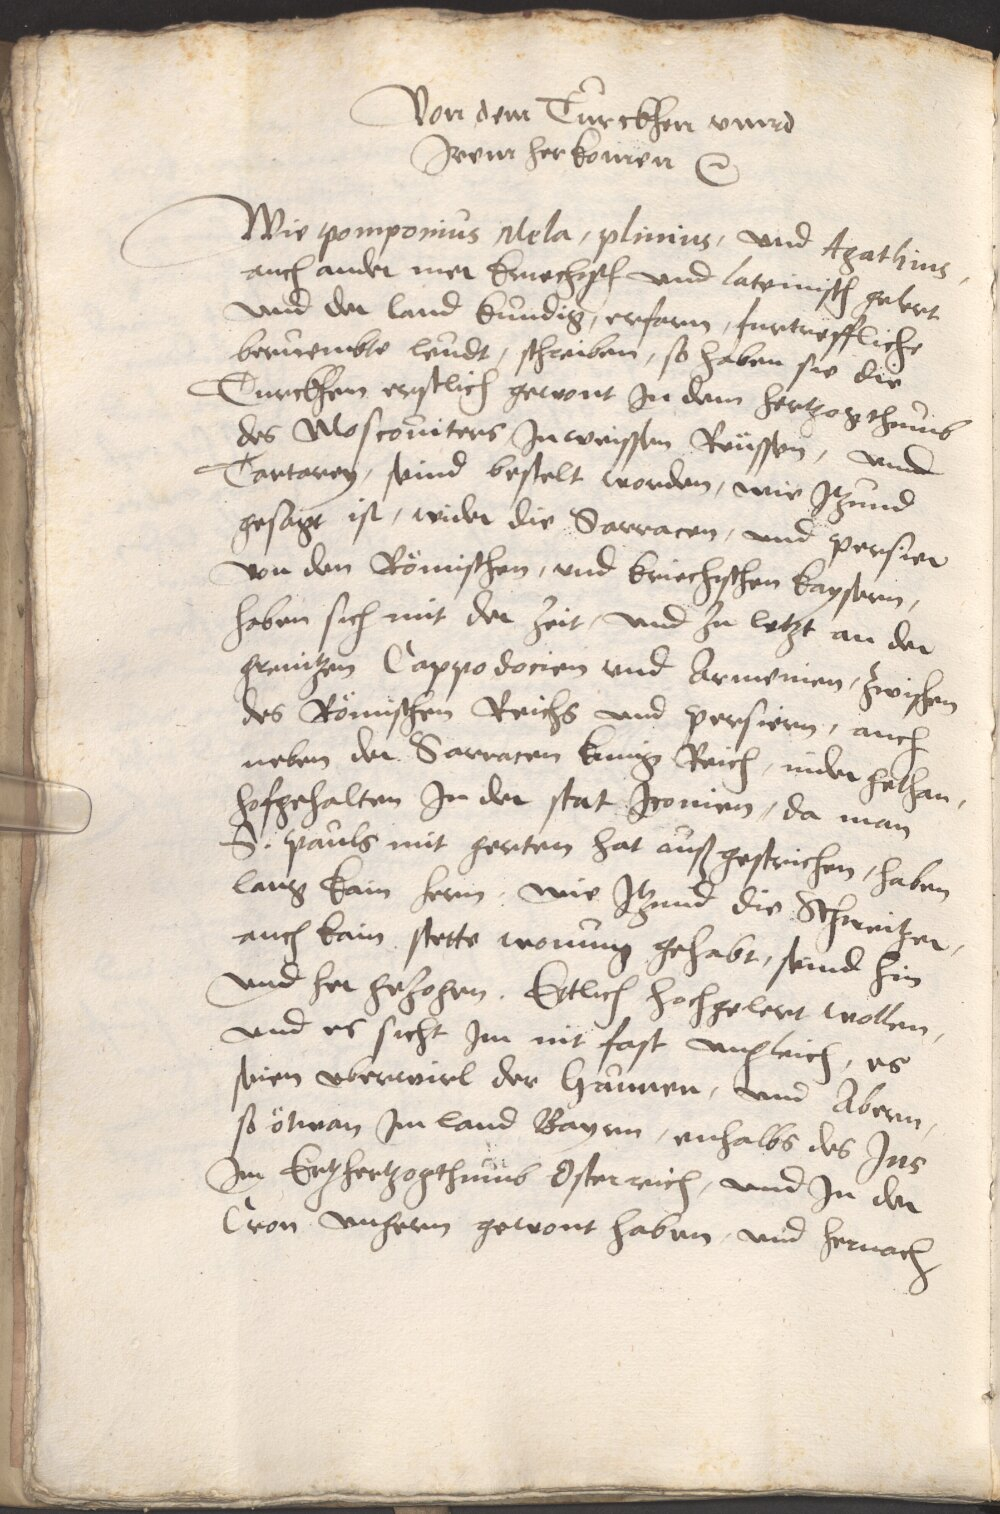 Von dem Türckhen vnnd
Irem herkomen
Wie pomponius Mela, plinius, vnd Agathius,
auch ander mer kriechisch vnd lateinisch gelert
vnd der land kundig, erfarn, furtreffliche
beruembte leudt, schreiben, so haben sie die
Turckhen erstlich gewont In dem hertzogthumb
des Moscouiters In weissen Reüssen, vnnd
Tartarey, seind bestelt worden, wie Itzund
gesagt ist, wider die Sarracen, vnd persier
von den Römischen, vnd kriechischen kaysern,
haben sich mit der Zeit, vnd zu letzt an der
grenitzen Cappodocien vnd Armenien, zwischen
des Römischen Reichs vnd persiern, auch
neben der Sarracen kunig Reich, nider gethan,
hofgehalten In der stat Iconien, da man
S. pauls mit gerten hat außgestrichen, haben
lang kain hern, wie Itzund die Schweitzer,
auch kain stette wonung gehabt, seind hin
vnd her gezogen. Ettlich hochgelert wollen,
vnd es sicht Im nit fast vngleich, es
seien vberwirl der Haunen, vnd Abern,
so ötwan Im land Bayrn, enhalbs des Ins
Im Ertzhertzogthumb Osterreich, vnd In der
Cron vnngern gewont haben, vnd hernach